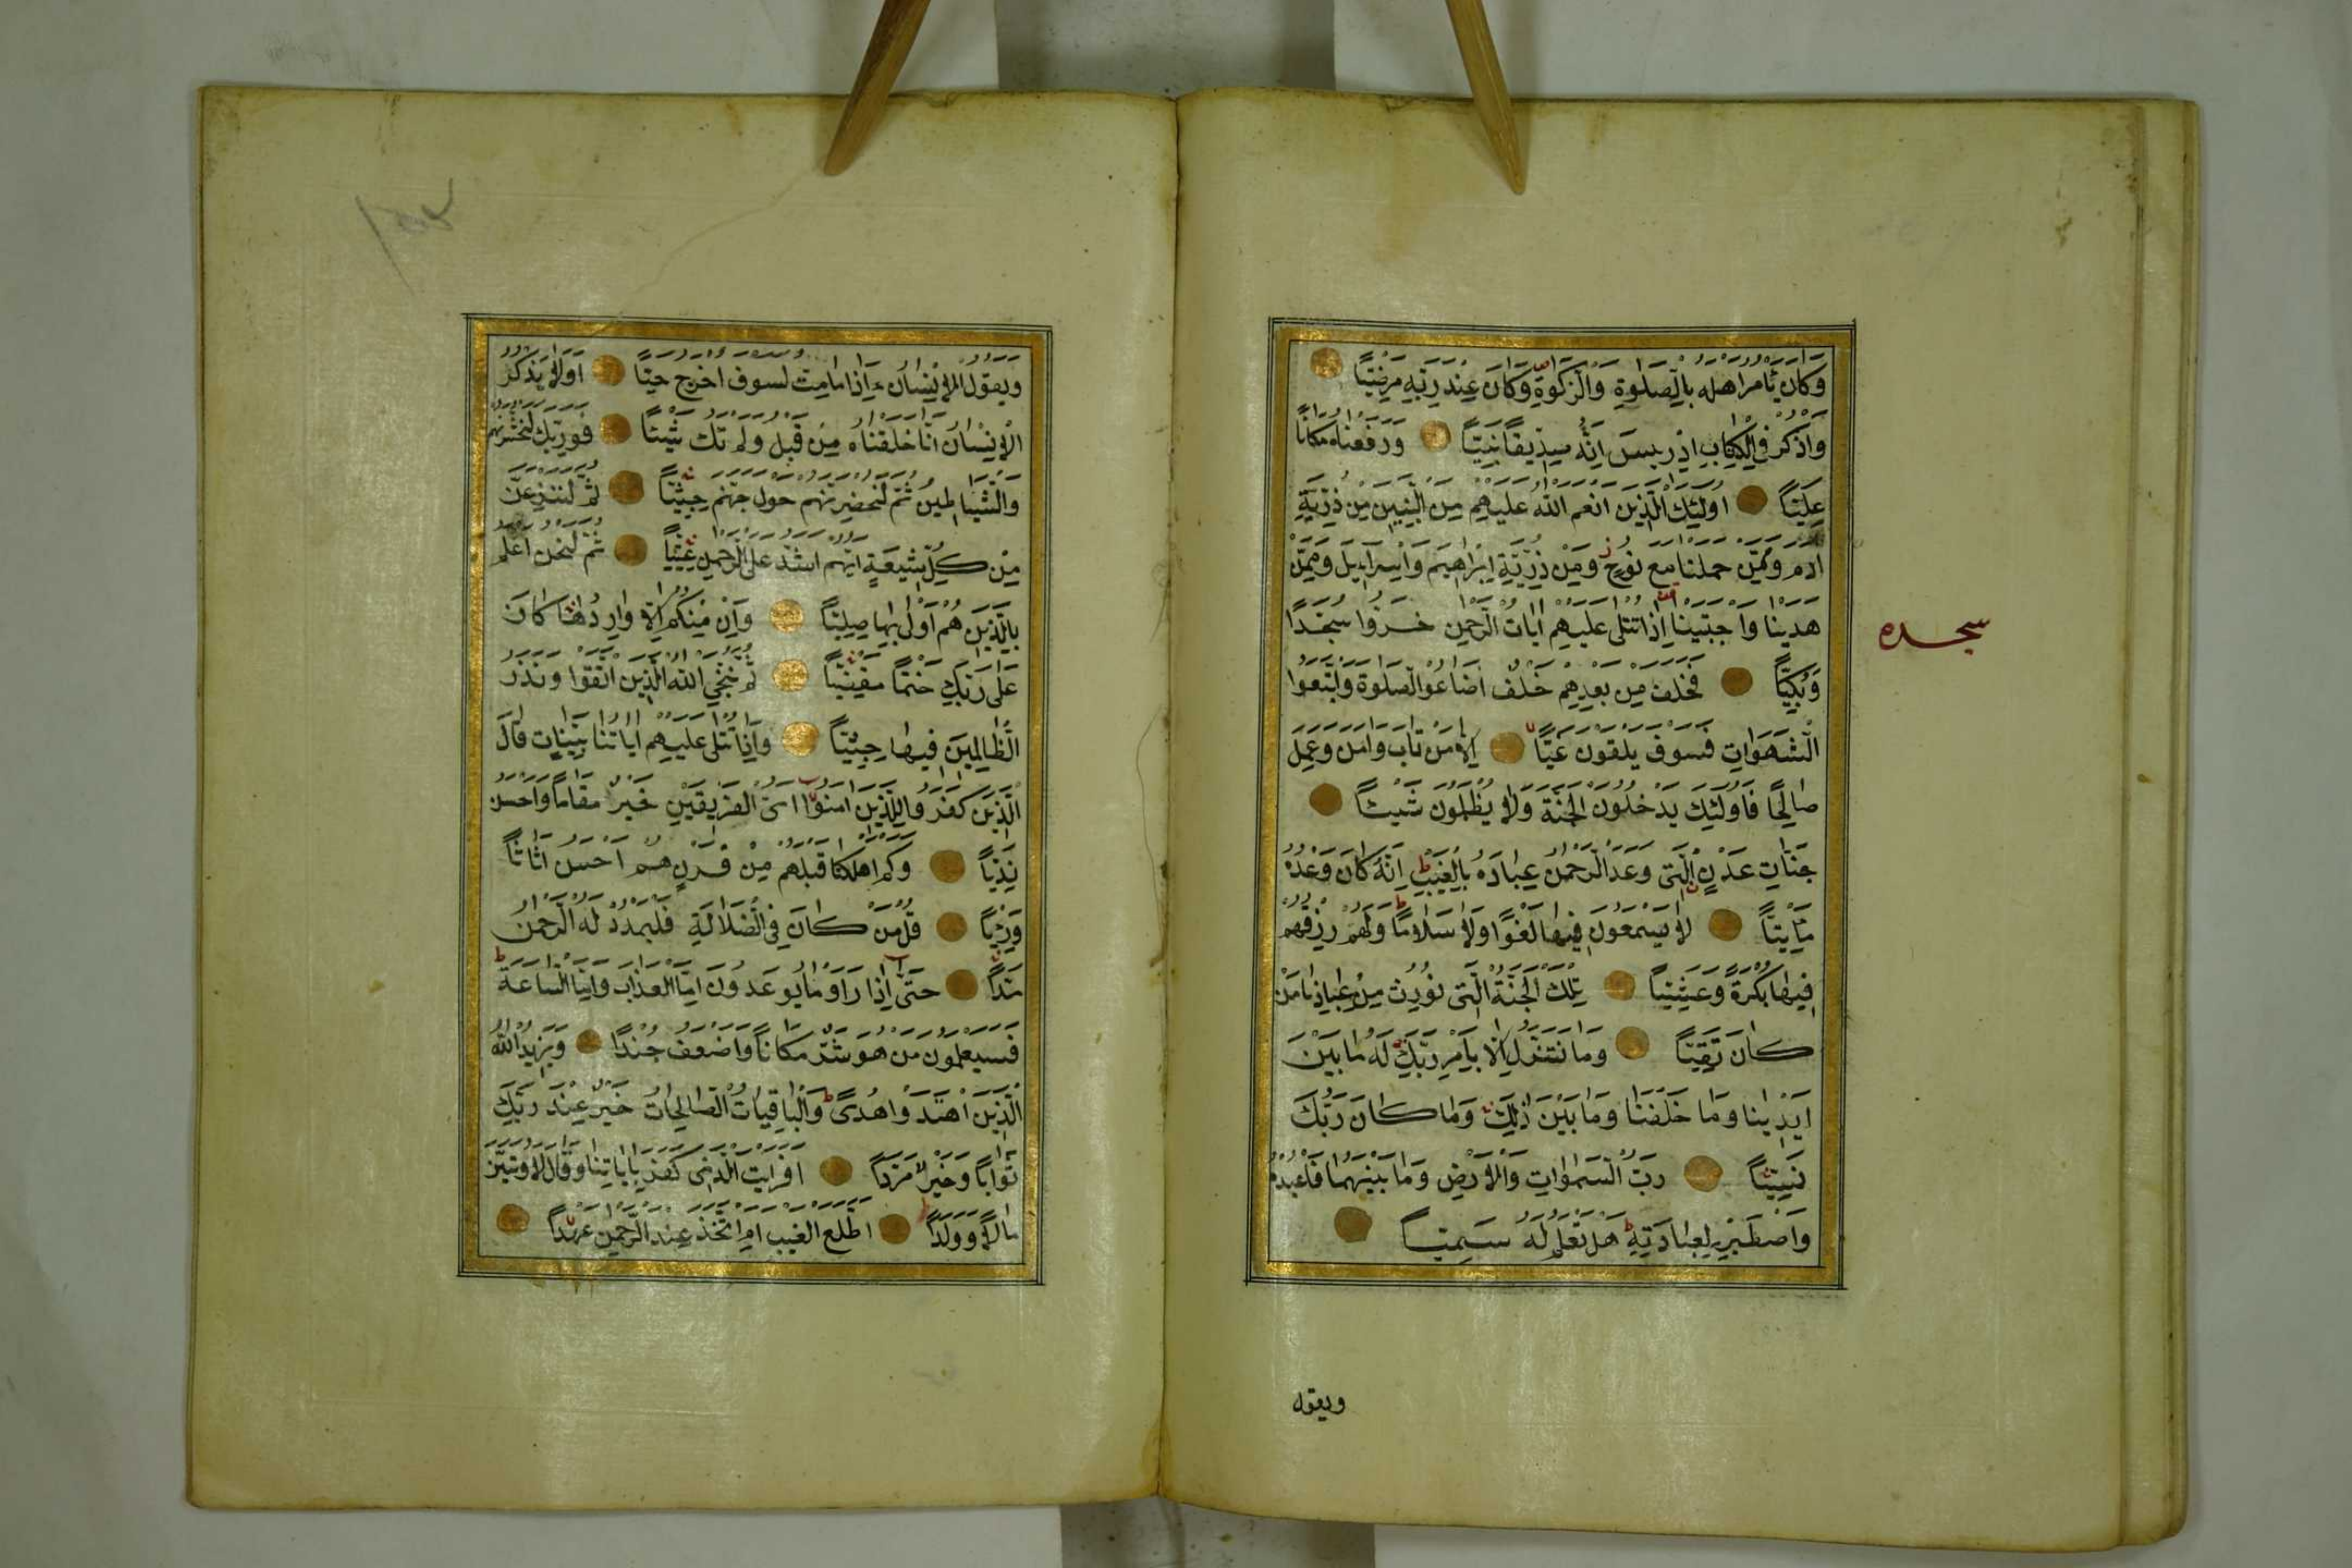 وَكَانَ يَأْمُرُ اَهْلَهُ بِالصَّلٰوةِ وَالزَّكٰوةِ وَكَانَ عِنْدَ رَبِّهِ مَرْضِيًّا
وَاذْكُرْ فِي الْكِتَابِ اِدْرِيسَ اِنَّهُ كَانَ صِدِّيقًا نَبِيًّا وَرَفَعْنَاهُ مَكَانًا
عَلِيًّا اُولٰئِكَ الَّذِينَ اَنْعَمَ اللّٰهُ عَلَيْهِمْ مِنَ النَّبِيِّينَ مِنْ ذُرِّيَّةِ
اٰدَمَ وَمِمَّنْ حَمَلْنَا مَعَ نُوحٍ وَمِنْ ذُرِّيَّةِ اِبْرٰاهِيمَ وَاِسْرَاءِيلَ وَمِمَّنْ
هَدَيْنَا وَاجْتَبَيْنَا اِذَا تُتْلٰى عَلَيْهِمْ اٰيَاتُ الرَّحْمٰنِ خَرُّوا سُجَّدًا
سجده
وَبُكِيًّا فَخَلَفَ مِنْ بَعْدِهِمْ خَلْفٌ اَضَاعُوا الصَّلٰوةَ وَاتَّبَعُوا
الشَّهَوَاتِ فَسَوْفَ يَلْقَوْنَ غَيًّا اِلَّا مَنْ تَابَ وَاٰمَنَ وَعَمِلَ
صَالِحًا فَاُولٰئِكَ يَدْخُلُونَ الْجَنَّةَ وَلَا يُظْلَمُونَ شَيْئًا
جَنَّاتِ عَدْنٍ الَّتِي وَعَدَ الرَّحْمٰنُ عِبَادَهُ بِالْغَيْبِ اِنَّهُ كَانَ وَعْدُهُ
مَأْتِيًّا لَا يَسْمَعُونَ فِيهَا لَغْوًا وَلَا سَلَامًا وَلَهُمْ رِزْقُهُمْ
فِيهَا بُكْرَةً وَعَشِيًّا تِلْكَ الْجَنَّةُ الَّتِي نُورِثُ مِنْ عِبَادِنَا مَنْ
كَانَ تَقِيًّا وَمَا نَتَنَزَّلُ اِلَّا بِاَمْرِ رَبِّكَ لَهُ مَا بَيْنَ
اَيْدِينَا وَمَا خَلْفَنَا وَمَا بَيْنَ ذٰلِكَ وَمَا كَانَ رَبُّكَ
نَسِيًّا رَبُّ السَّمٰوَاتِ وَالْاَرْضِ وَمَا بَيْنَهُمَا فَاعْبُدْهُ
وَاصْطَبِرْ لِعِبَادَتِهِ هَلْ تَعْلَمُ لَهُ سَمِيًّا
ويقول
وَيَقُولُ الْاِنْسَانُ ءَاِذَا مَا مِتُّ لَسَوْفَ اُخْرَجُ حَيًّا اَوَلَا يَذْكُرُ
الْاِنْسَانُ اَنَّا خَلَقْنَاهُ مِنْ قَبْلُ وَلَمْ تَكُ شَيْئًا فَوَرَبِّكَ لَنَحْشُرَنَّهُمْ
وَالشَّيَاطِينَ ثُمَّ لَنُحْضِرَنَّهُمْ حَوْلَ جَهَنَّمَ جِثِيًّا ثُمَّ لَنَنْزِعَنَّ
مِنْ كُلِّ شِيعَةٍ اَيُّهُمْ اَشَدُّ عَلَى الرَّحْمٰنِ عِتِيًّا ثُمَّ لَنَحْنُ اَعْلَمُ
بِالَّذِينَ هُمْ اَوْلٰى بِهَا صِلِيًّا وَاِنْ مِنْكُمْ اِلَّا وَارِدُهَا كَانَ
عَلٰى رَبِّكَ حَتْمًا مَقْضِيًّا ثُمَّ نُنَجِّي اللّٰهُ الَّذِينَ اتَّقَوْا وَنَذَرُ
الظَّالِمِينَ فِيهَا جِثِيًّا وَاِذَا تُتْلٰى عَلَيْهِمْ اٰيَاتُنَا بَيِّنَاتٍ قَالَ
الَّذِينَ كَفَرُوا لِلَّذِينَ اٰمَنُوا اَيُّ الْفَرِيقَيْنِ خَيْرٌ مَقَامًا وَاَحْسَنُ
نَدِيًّا وَكَمْ اَهْلَكْنَا قَبْلَهُمْ مِنْ قَرْنٍ هُمْ اَحْسَنُ اَثَاثًا
وَرِئْيًا قُلْ مَنْ كَانَ فِي الضَّلَالَةِ فَلْيَمْدُدْ لَهُ الرَّحْمٰنُ
مَدًّا حَتّٰى اِذَا رَاَوْا مَا يُوعَدُونَ اِمَّا الْعَذَابَ وَاِمَّا السَّاعَةَ
فَسَيَعْلَمُونَ مَنْ هُوَ شَرٌّ مَكَانًا وَاَضْعَفُ جُنْدًا وَيَزِيدُ اللّٰهُ
الَّذِينَ اهْتَدَوْا هُدًى وَالْبَاقِيَاتُ الصَّالِحَاتُ خَيْرٌ عِنْدَ رَبِّكَ
ثَوَابًا وَخَيْرٌ مَرَدًّا اَفَرَاَيْتَ الَّذِي كَفَرَ بِاٰيَاتِنَا وَقَالَ لَاُوتَيَنَّ
مَالًا وَوَلَدًا اَطَّلَعَ الْغَيْبَ اَمِ اتَّخَذَ عِنْدَ الرَّحْمٰنِ عَهْدًا